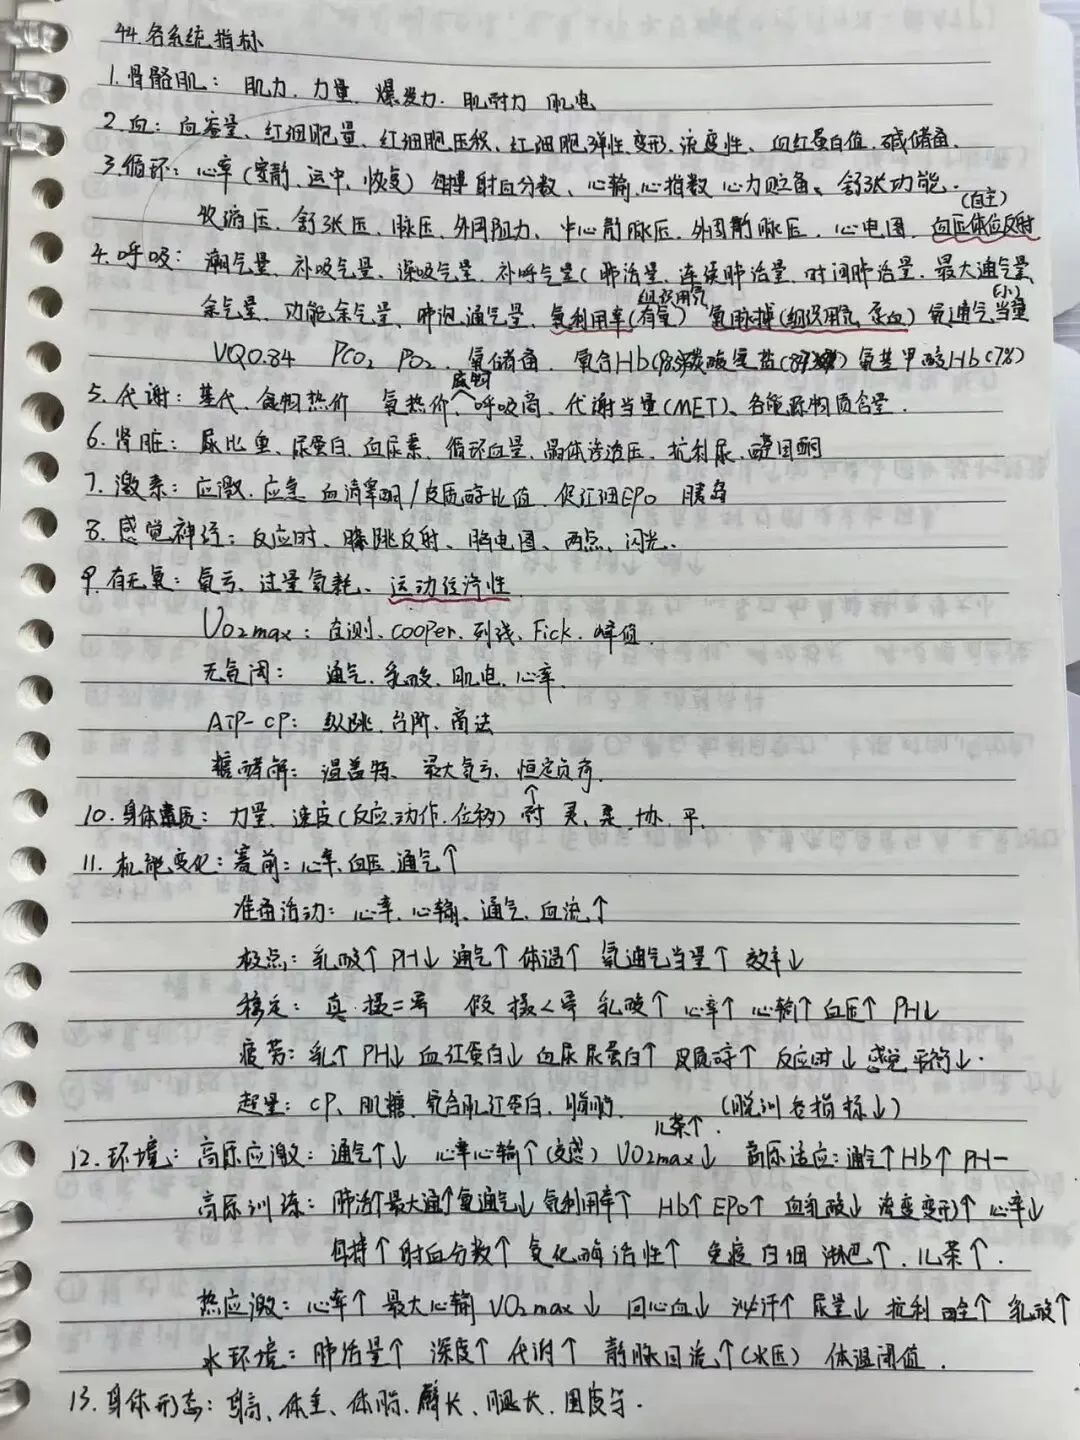 44.各系统指标
1.骨骼肌：肌力、力量、爆发力、肌耐力 肌电
2.血：血容量、红细胞量、红细胞压积、红细胞弹性、变形、流变性、血红蛋白值、碱储备、
3.循环：心率（安静、运中、恢复）每搏 射血分数、心输、心指数 心力贮备、舒张功能、
收缩压、舒张压、脉压、外周阻力、中心静脉压、外周静脉压、心电图、血压体位反射（自主）
4.呼吸：潮气量、补吸气量、深吸气量、补呼气量（肺活量、连续肺活量、时间肺活量、最大通气量
余气量、功能余气量、肺泡通气量、氧利用率（有氧）组织用氧 氧脉搏（组织用氧、泵血）氧通气当量（小）
VQ0.84 PCO₂ PO₂、氧储备、氧合Hb 碳酸氢盐 氨基甲酸Hb（7%）
5.代谢：基代、食物热价 氧热价、底物 呼吸商、代谢当量（MET）、各能源物质含量、
6.肾脏：尿比重、尿蛋白、血尿素、循环血量、晶体渗透压、抗利尿、醛固酮
7.激素：应激、应急 血清睾酮/皮质醇比值、促红细EPO 胰岛
8.感觉神经：反应时、膝跳反射、脑电图、两点、闪光、
9.有无氧：氧亏、过量氧耗、运动经济性
VO₂max：直测、cooper、列线、Fick、峰值、
无氧阈：通气、乳酸、肌电、心率、
ATP-CP：纵跳、台阶、商法
糖酵解：温盖特、最大氧亏、恒定负荷、
10.身体素质：力量、速度（反应、动作、位移）耐 灵、柔、协、平、
11.机能变化：赛前：心率、血压、通气↑
准备活动：心率、心输、通气、血流↑
极点：乳酸↑ PH↓ 通气↑ 体温↑ 氧通气当量↑ 效率↓
稳定：真 摄=需 假 摄<需 乳酸↑ 心率↑ 心输↑ 血压↑ PH↓
疲劳：乳↑ PH↓ 血红蛋白↓ 血尿尿蛋白↑ 皮质醇↑ 反应时↓ 感觉平衡↓、
超量：CP、肌糖、氧合肌红蛋白、脂肪、（脱训各指标↓）
12.环境：高原应激：通气↑↓ 心率心输↑（交感）儿茶↑、VO₂max↓ 高原适应：通气↑Hb↑ PH—
高原训练：肺活↑最大通↑氧通气↓ 氧利用率↑ Hb↑ EPO↑ 血乳酸↓ 流变变形↑ 心率↓
每搏↑ 射血分数↑ 氧化酶活性↑ 免疫 白细 淋巴↑、儿茶↑、
热应激：心率↑ 最大心输 VO₂max↓ 回心血↓ 泌汗↑ 尿量↓ 抗利 醛↑ 乳酸↑
水环境：肺活量↑ 深度↑ 代谢↑ 静脉回流↑（水压）体温阈值、
13.身体形态：身高、体重、体脂、臂长、腿长、围度等、